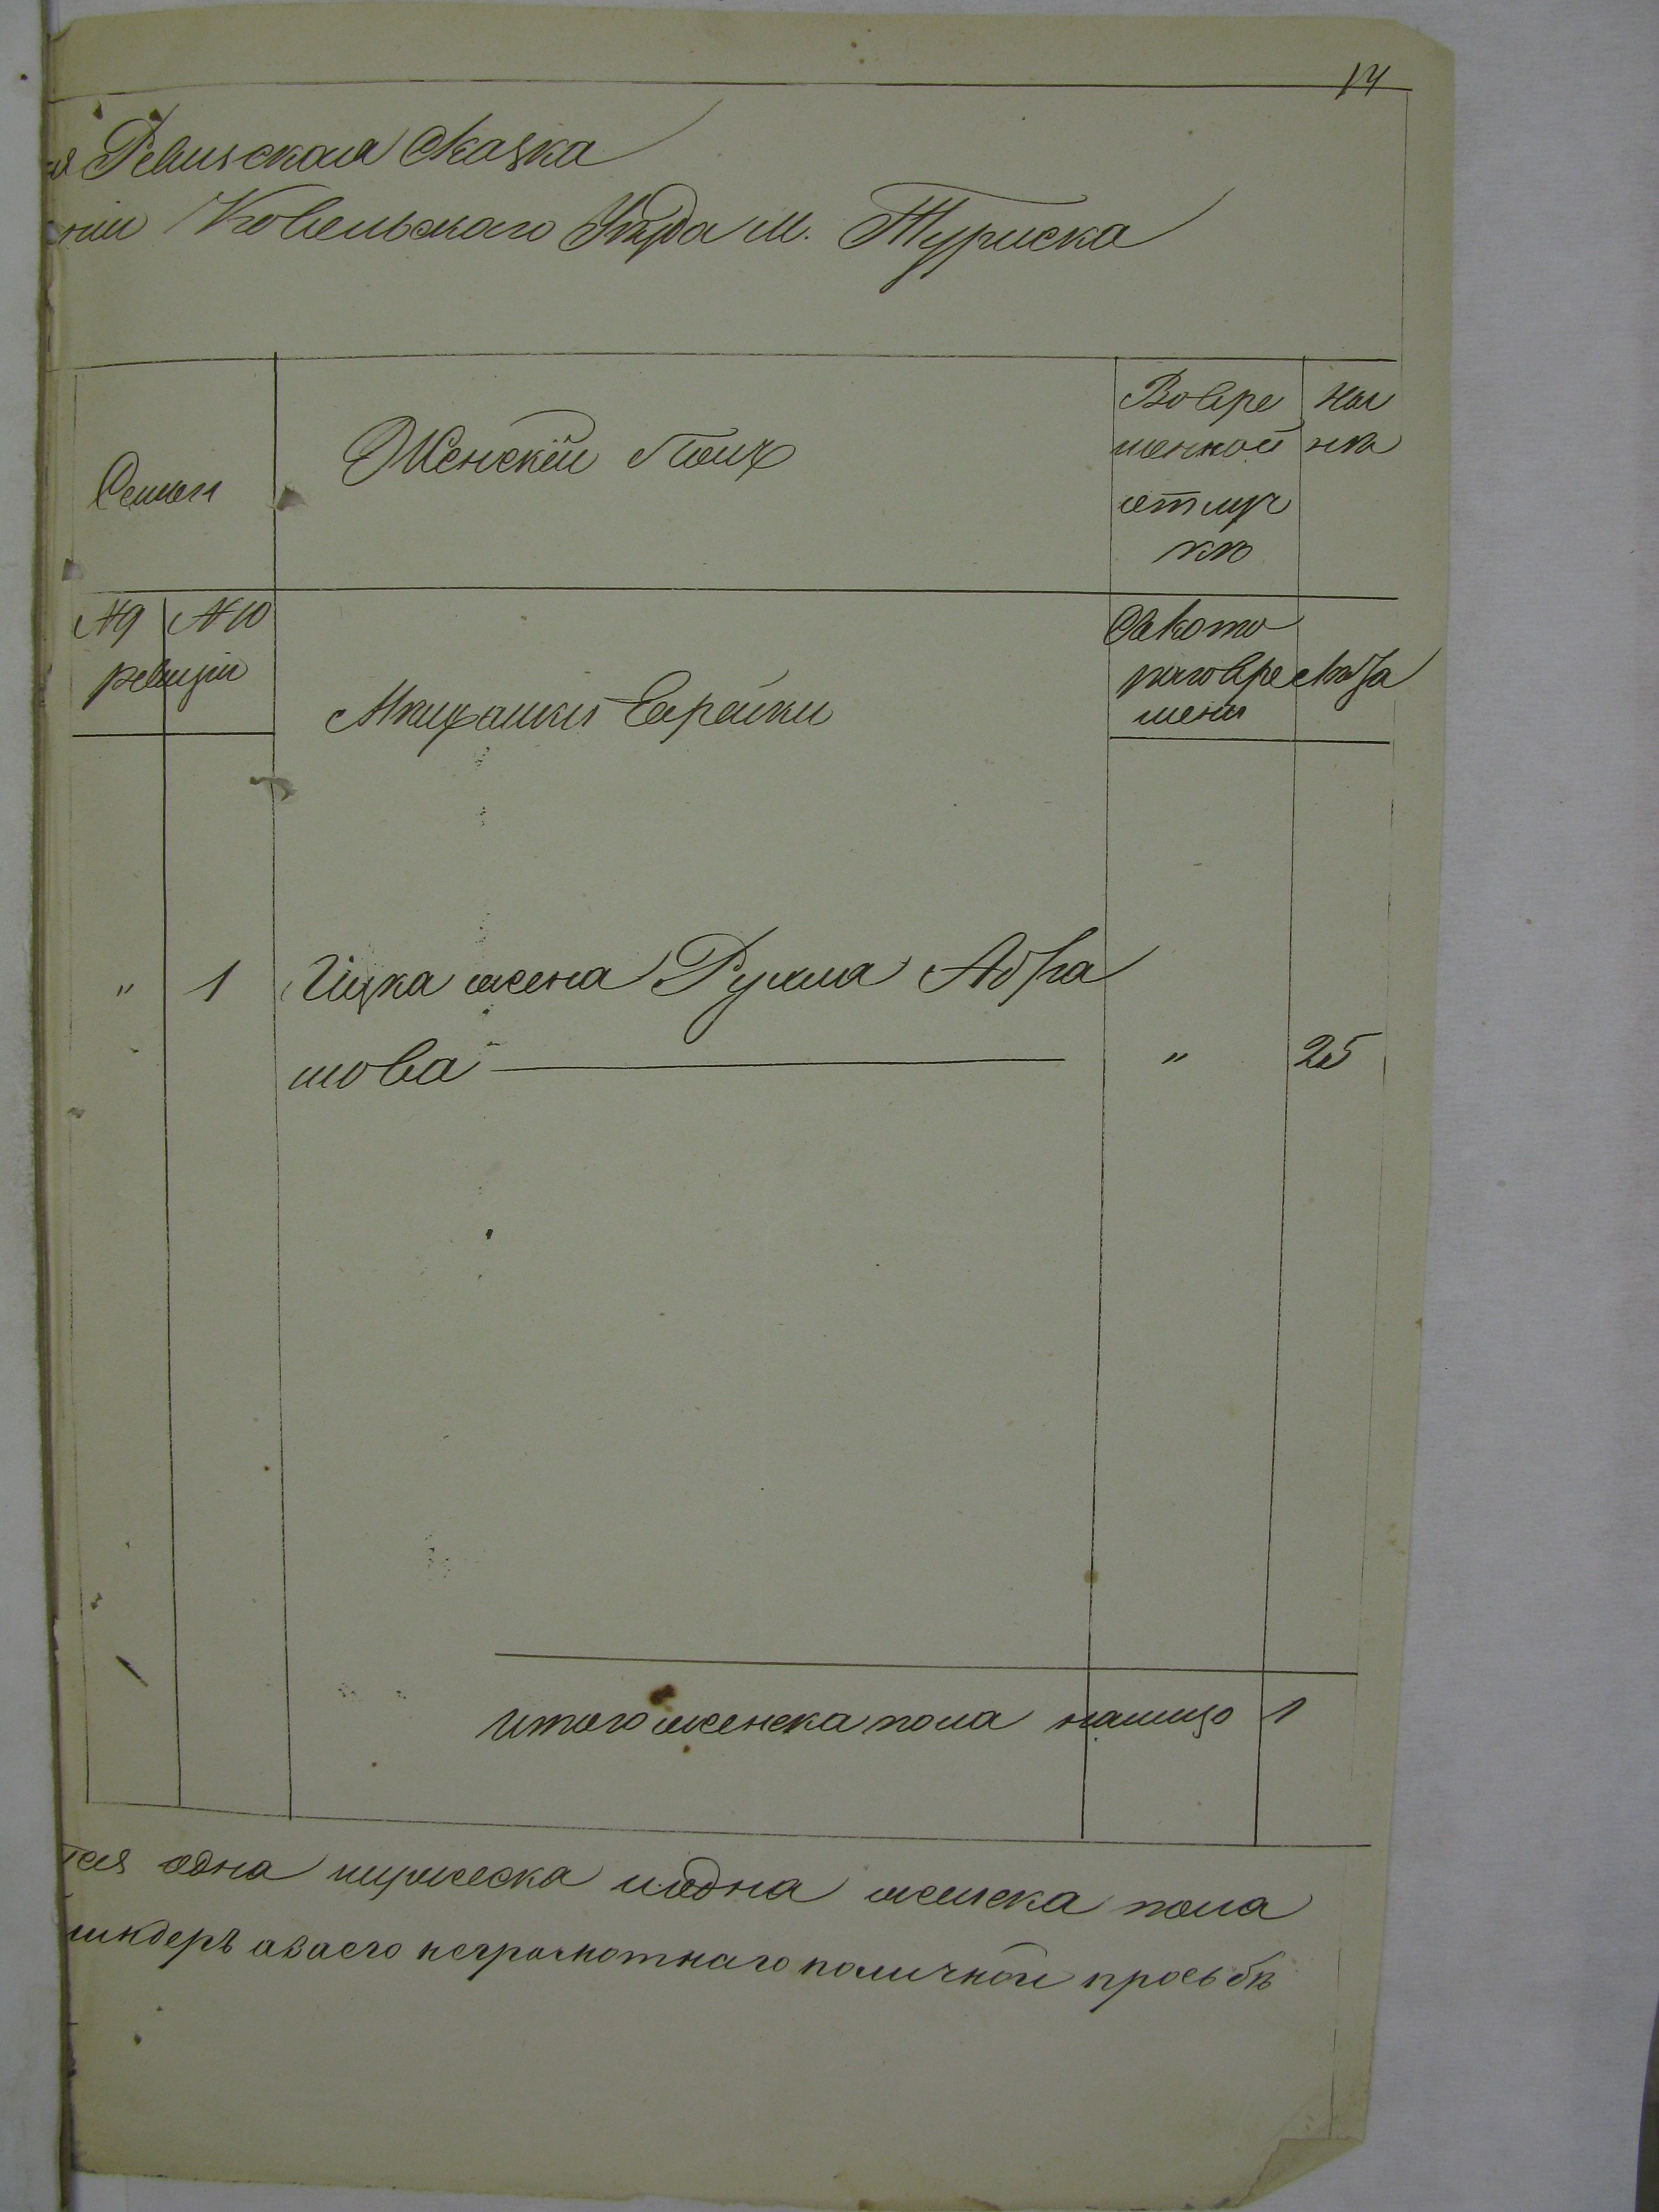 14
я Ревизская Сказка
ніи Ковельскаго Уѣзда м. Туриска
Семьи
Женскій Полъ
Во вре
менной
отлуч
кѣ
Нал
нѣ
№9 №10
ревизіи
Мѣщанки Еврейки
Съ кото
раго вре
мени
Лѣта
" 1 Ицка жена Рухля Абра
мова " 25
Итого женска пола налицо 1
тся одна мужеска и одна женска пола
а за его неграмотнаго по личной просьбѣ